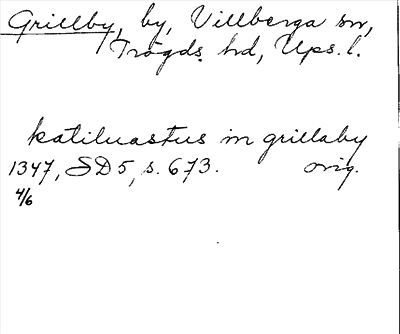 Grillby, by, Villberga sn,
Trögds hd, Ups. l.
katiluastus in grillaby
1347, SD 5, s. 673. orig.
4/6